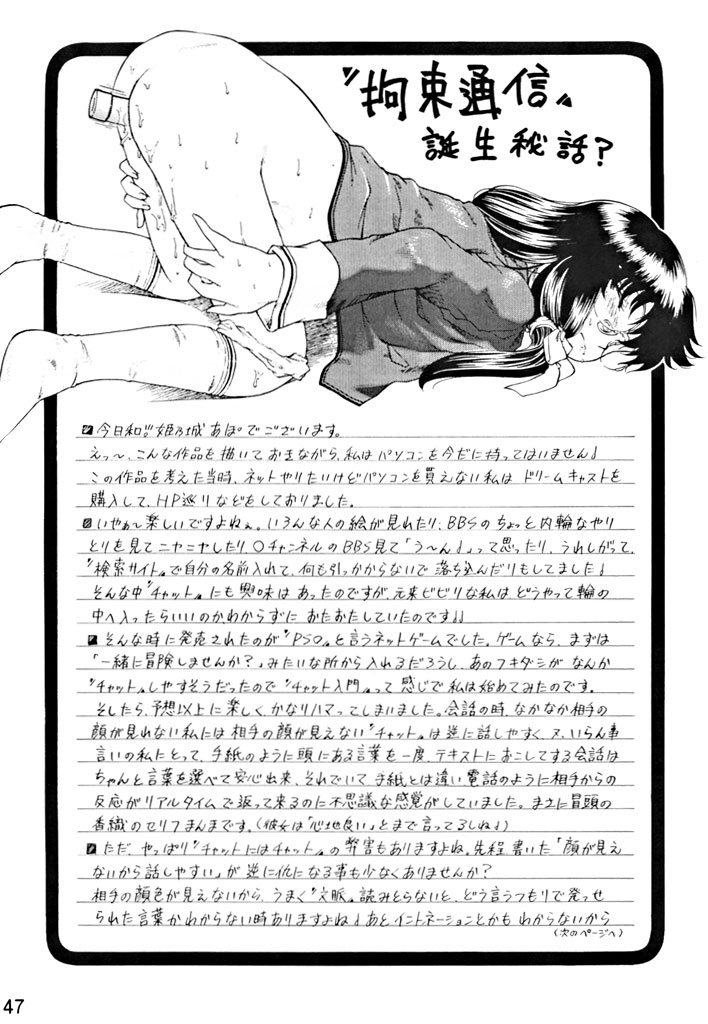 〝拘束通信〟
誕生秘話？
今日和!!姫乃城あぽでございます。
えっ～、こんな作品を描いておきながら、私はパソコンを今だに持ってはいません♪
この作品を考えた当時、ネットやりたいけどパソコンを買えない私はドリームキャストを
購入して、HP巡りなどをしておりました。
いやぁ～楽しいですよねぇ。いろんな人の絵が見れたり、BBSのちょっと内輪なやり
とりを見てニヤニヤしたり、〇チャンネルのBBS見て「う～ん♪」って思ったり、うれしがって、
〝検索サイト〟で自分の名前入れて、何も引っかからないで落ち込んだりもしてました♪
そんな中〝チャット〟にも興味はあったのですが、元来ビビリな私は、どうやって輪の
中へ入ったらいいのかわからずにおたおたしていたのです♪♪
そんな時に発売されたのが〝PSO〟と言うネットゲームでした。ゲームなら、まずは
「一緒に冒険しませんか？」みたいな所から入れるだろうし、あのフキダシがなんか
〝チャット〟しやすそうだったので〝チャット入門〟って感じで私は始めてみたのです。
そしたら、予想以上に楽しく、かなりハマってしまいました。会話の時、なかなか相手の
顔が見れない私には相手の顔が見えない〝チャット〟は逆に話しやすく、又、いらん事
言いの私にとって、手紙のように頭にある言葉を一度、テキストにおこしてする会話は
ちゃんと言葉を選べて安心出来、それでいて、手紙とは違い電話のように相手からの
反応がリアルタイムで返って来るのに不思議な感覚がしていました。まさに冒頭の
香織のセリフまんまです。(彼女は「心地良い」とまで言ってるしね♪)
ただ、やっぱり〝チャットにはチャット〟の弊害もありますよね。先程書いた「顔が見え
ないから話しやすい」が逆に仇になる事も少なくありませんか？
相手の顔色が見えないから、うまく〝文脈〟読みとらないと、どう言うつもりで発っせ
られた言葉かわからない時ありますよね♪あと、イントネーションとかもわからないから
(次のページへ)
47